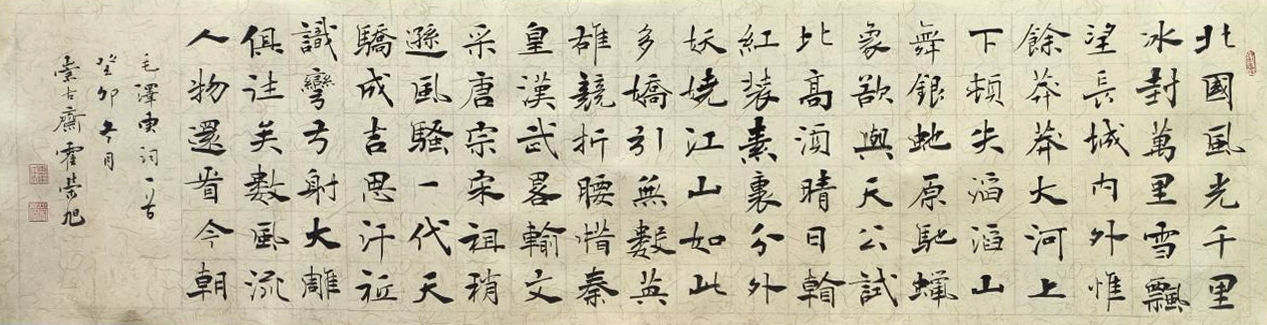 北國風光千里
冰封萬里雪飄
望長城内外惟
餘莽莽大河上
下頓失滔滔山
舞銀蛇原馳蠟
象欲與天公試
比高須晴日看
紅裝素裹分外
妖嬈江山如此
多嬌引無數英
雄競折腰惜秦
皇漢武畧輸文
采唐宗宋祖稍
遜風騷一代天
驕成吉思汗祗
識彎弓射大雕
俱往矣數風流
人物還看今朝
毛澤東詞一首
癸卯冬月
崇古齋霍崇旭